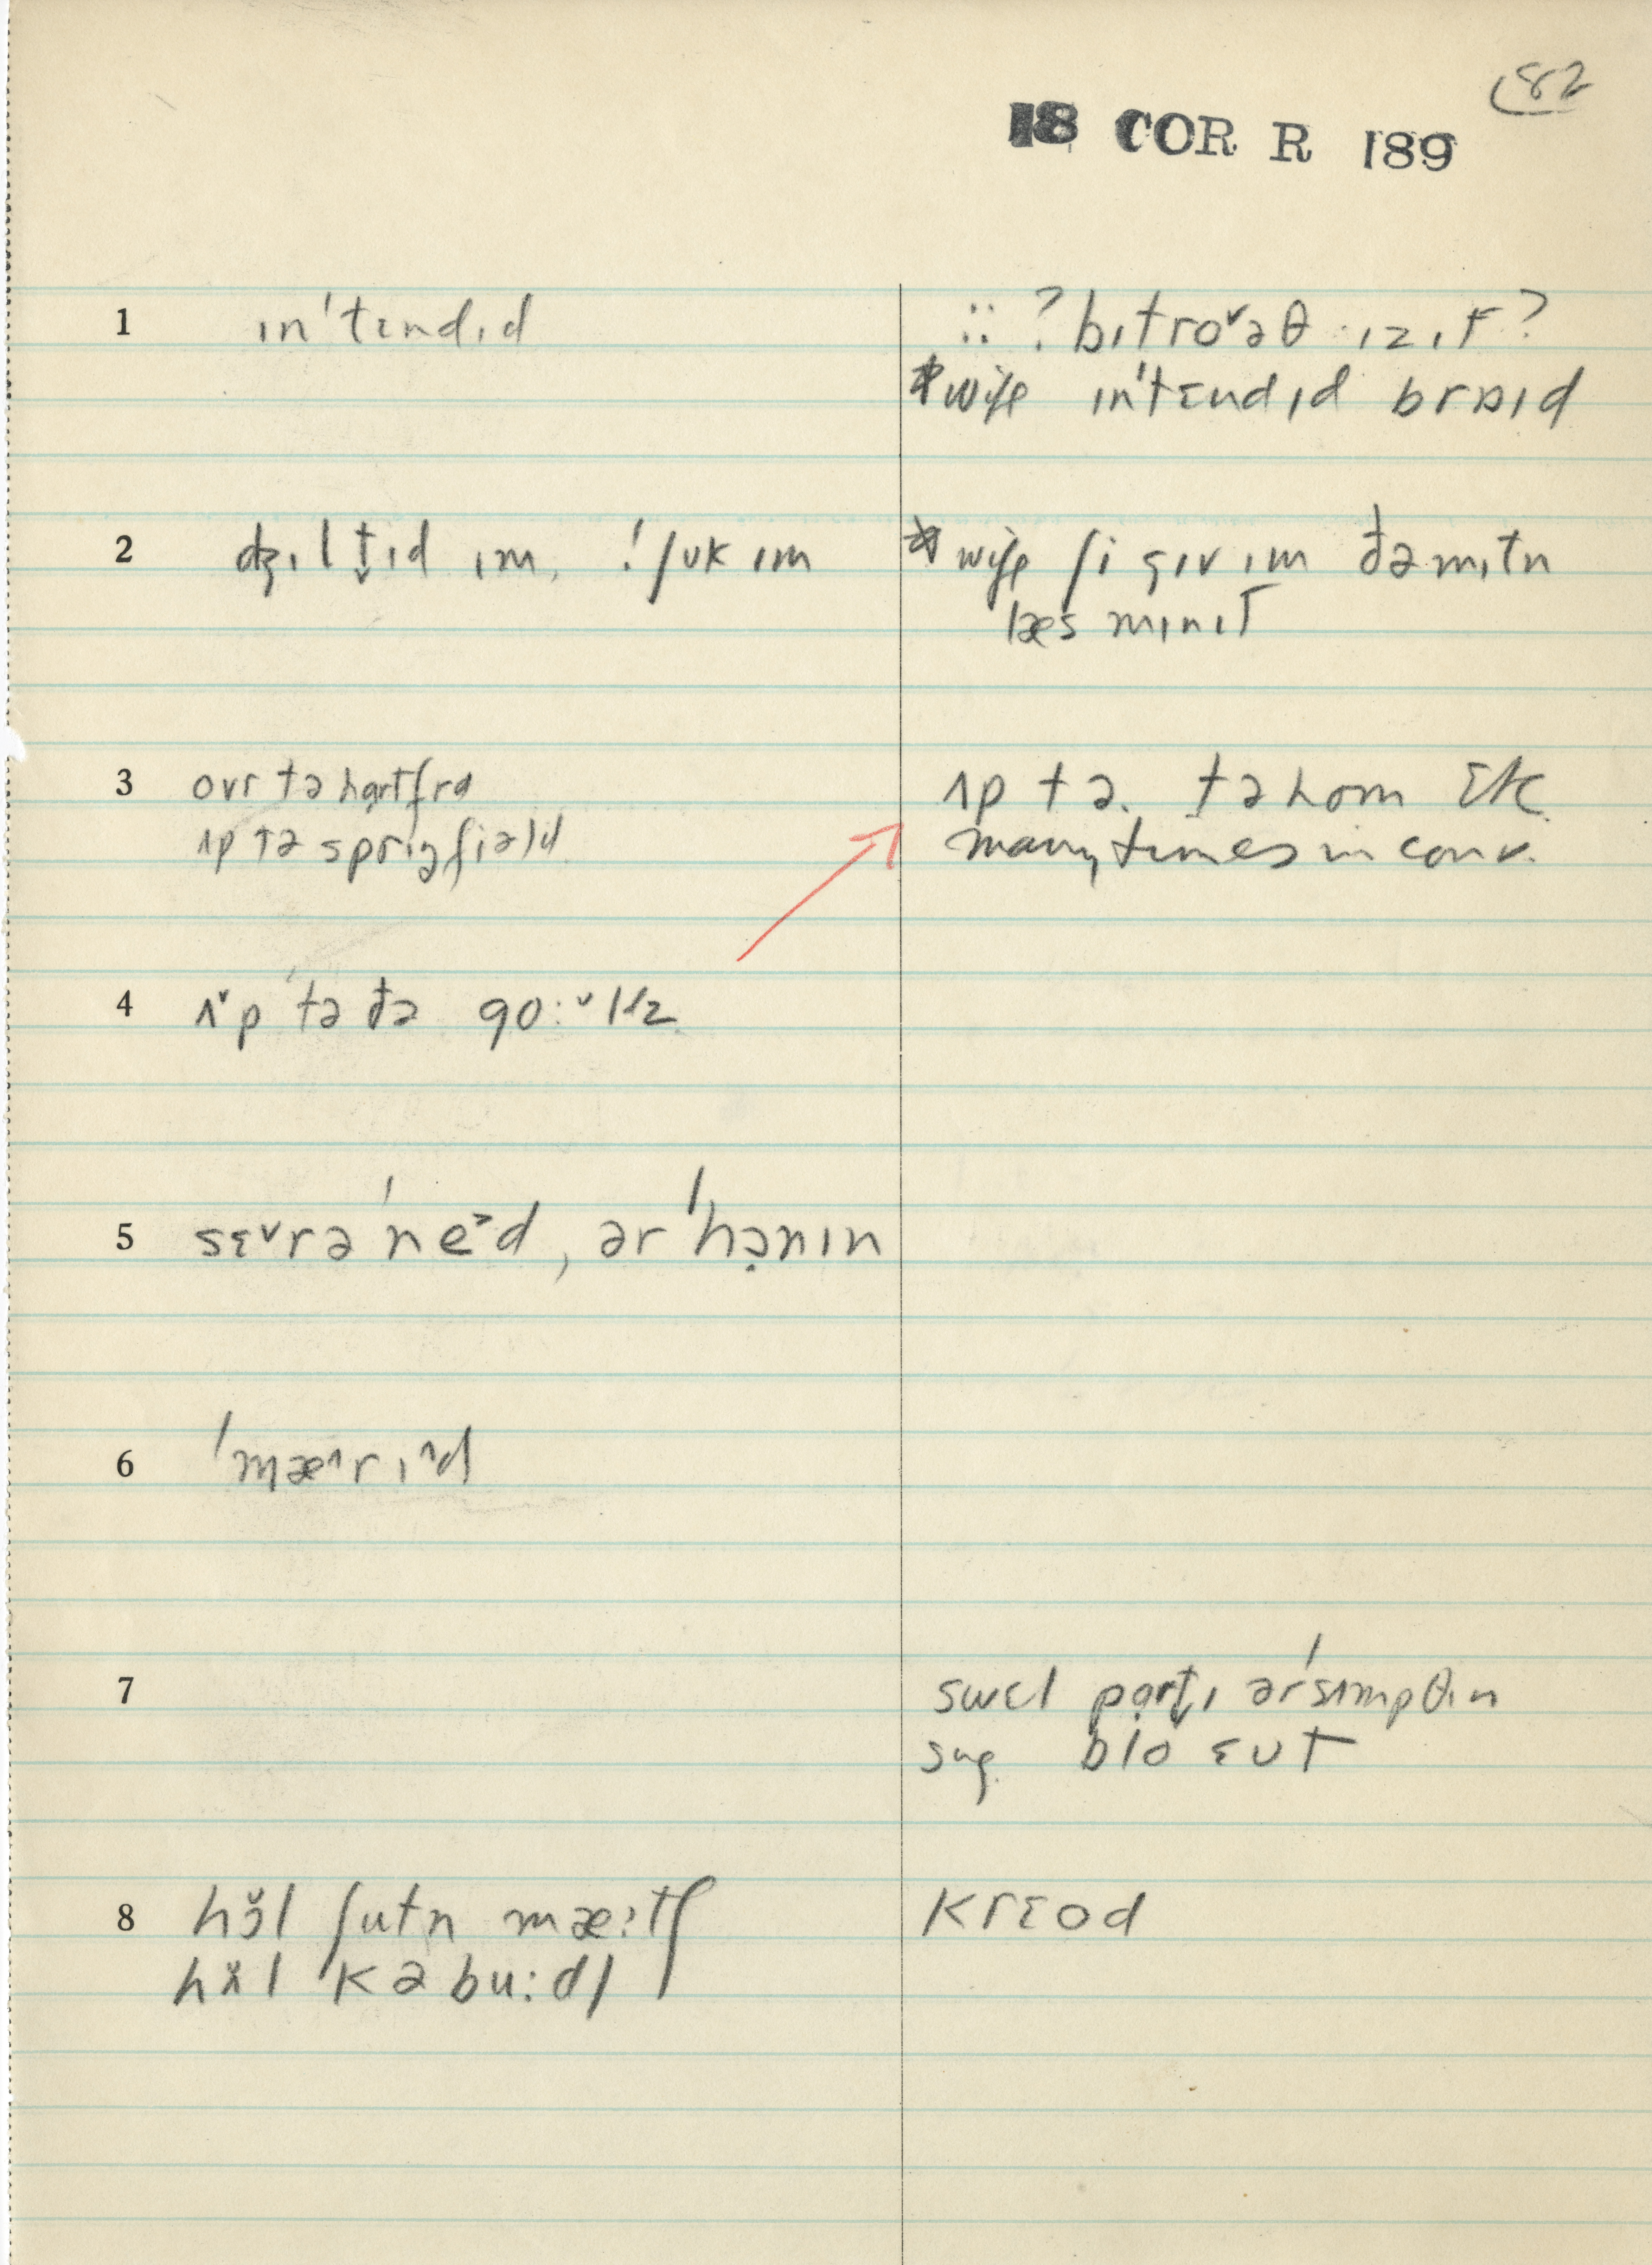 82
18 COR R 189
1 ɪn'tɛndɪd
:: ? bɪtroᵛəθ ɪzɪt ?
* wife ɪn'tɛndɪd braɪd
2 dʒɪltɪd ɪm, ! ʃʊk ɪm
* wife ʃi gɪv ɪm ðə mɪtn
læs mɪnɪt
3 ovr tə hɑrtfrd
ʌp tə sprɪŋfiəld
ʌp tə. tə hom etc.
many times in conv.
4 ʌᵛp tə ðə
5 sɛᵛrə'ne˃d, ər'hənɪn
6 'mæ^rɪ^d
7 swɛl pɑrtɪ ər'sʌmpθɪn
sug. blo ɛʊt
8 hɔl ʃutn mæ:tʃ
kəbu:dl
krɛod